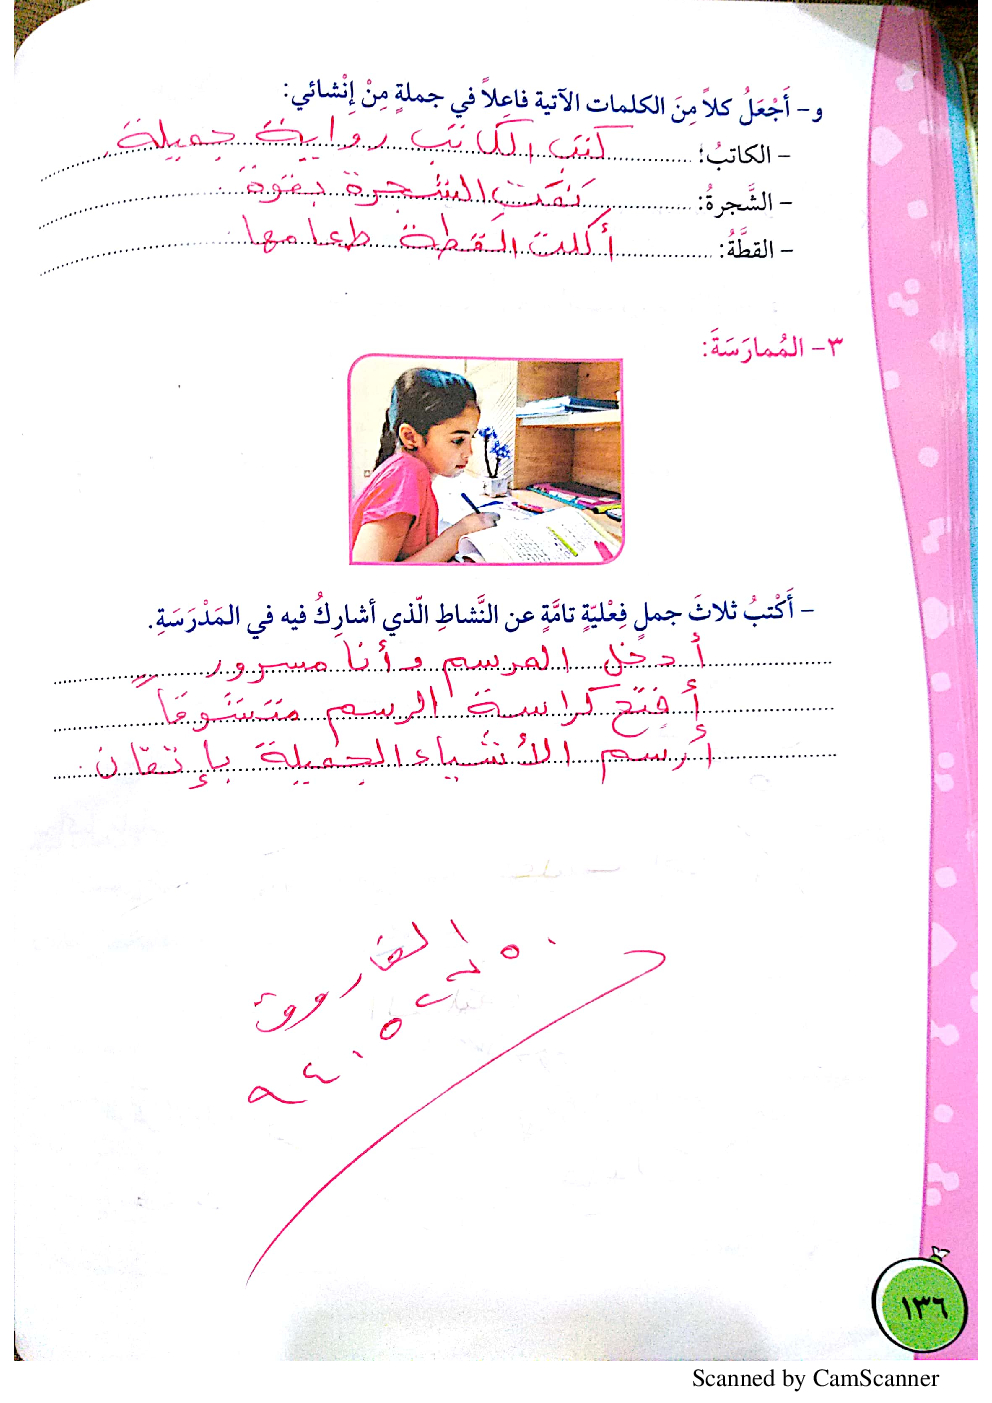 و- أَجْعَلُ كلاً مِنَ الكلمات الآتية فاعِلاً في جملةٍ مِنْ إنْشائي:
- الكاتبُ: كتب الكاتب رواية جميلة.
- الشَّجرةُ: نمَت الشجرة بقوة.
- القطَّةُ: أكلت القطة طعامها.
٣- المُمارَسَةَ:
- أَكْتبُ ثلاثَ جملٍ فِعْليّةٍ تامَّةٍ عن النَّشاطِ الّذي أشارِكُ فيه في المَدْرَسَةِ.
أدخل المرسم وأنا مسرور
أفتح كراسة الرسم متشوقاً
أرسم الأشياء الجميلة بإتقان.
الفاروق
١٣٦
Scanned by CamScanner